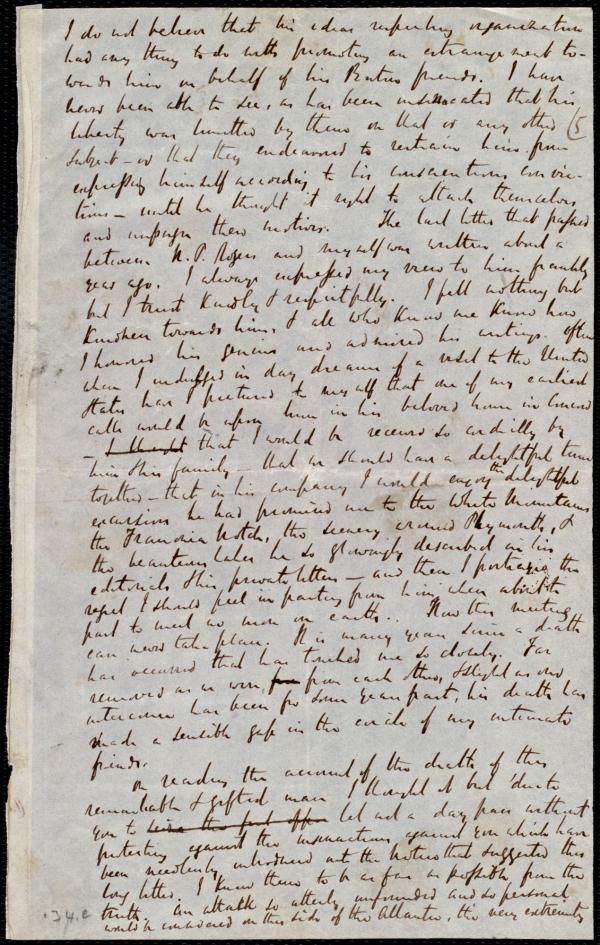 I do not believe that his ideas respecting organization
had any thing to do with promoting an estrangement to-
wards him on behalf of his Boston friends. I have
never been able to see, as has been insinuated that his
liberty was limited by them on that or any other (5
subject — or that they endeavored to restrain him from
expressing himself according to his conscientious convic-
tions — until he thought it right to attack themselves
and impugn their motives. The last letter that passed
between N. P. Rogers and myself was written about a
year ago. I always expressed my view to him frankly
but I trust kindly & respectfully. I felt nothing but
kindness towards him, & all who know me know how
I honored his genius and admired his writings. Often
when I indulged in day dreams of a visit to the United
States have I pictured to myself that one of my earliest
calls would be upon him in his beloved home in Concord
— I thought that I would be received so cordially by
him & his family — that we should have a delightful time
together — that in his company I would enjoy the delightful
excursions he had promised me to the White Mountains
the Franconia Notch, the scenery around Plymouth, &
the beauteous lakes he so glowingly described in his
editorials & his private letters — and then I portrayed the
regret I should feel in parting from him when about to
part to meet no more on earth.. Now this meeting
can never take place. It is many years since a death
has occurred that has touched me so closely. Far
removed as we were, from each other, & slight as our
intercourse has been for some years past, his death has
made a sensible gap in the circle of my intimate
friends.
On reading the account of the death of this
remarkable & gifted man I thought it but due to
you to let not a day pass without
protesting against the insinuations against you which have
been needlessly introduced into the notice that suggested this
long letter. I know them to be as far as possible from the
truth. An attack so utterly unfounded and so personal
would be considered on this side of the Atlantic, the very extremity